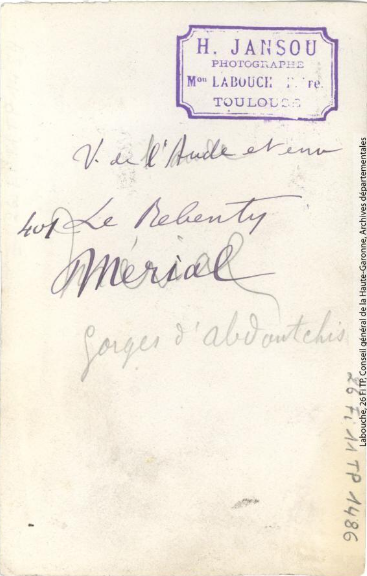 H. JANSOU
PHOTOGRAPHE
Mon LABOUCH
TOULOUSE
V. de l'Aude et env
401 Le Rebenty
Mérial
gorges d'abdoutchis
26 Fi 11 TP 1486
Labouche, 26 FI TP, Conseil général de la Haute-Garonne, Archives départementales